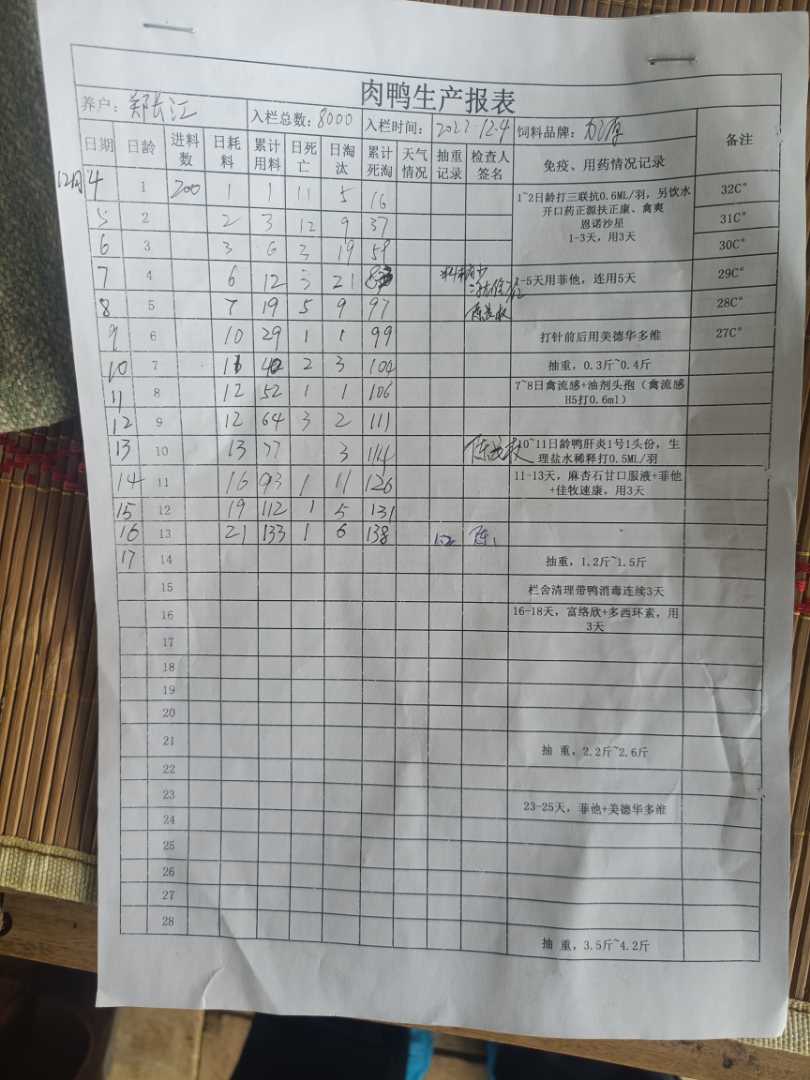 肉鸭生产报表
养户: 郑长江 入栏总数: 8000 入栏时间: 2022 12.4 饲料品牌:
日期 日龄 进料数 日耗料 累计用料 日死亡 日淘汰 累计死淘 天气情况 抽重记录 检查人签名 免疫、用药情况记录 备注
12月4 1 200 1 1 11 5 16 1~2日龄打三联抗0.6ML/羽, 另饮水 32C°
开口药正源扶正康、禽爽
恩诺沙星
1-3天, 用3天
5 2 2 3 12 9 37 31C°
6 3 3 6 3 19 59 30C°
7 4 6 12 3 21 -5天用菲他, 连用5天 29C°
8 5 7 19 5 9 97 28C°
9 6 10 29 1 1 99 打针前后用美德华多维 27C°
10 7 11 40 2 3 104 抽重, 0.3斤~0.4斤
11 8 12 52 1 1 106 7~8日禽流感+油剂头孢 (禽流感
H5打0.6ml)
12 9 12 64 3 2 111
13 10 13 77 3 114 10~11日龄鸭肝炎1号1头份, 生
理盐水稀释打0.5ML/羽
14 11 16 93 1 11 126 11-13天, 麻杏石甘口服液+菲他
+佳牧速康, 用3天
15 12 19 112 1 5 131
16 13 21 133 1 6 138 1.02 陈
17 14 抽重, 1.2斤~1.5斤
15 栏舍清理带鸭消毒连续3天
16 16-18天, 富络欣+多西环素, 用
3天
17
18
19
20
21 抽 重, 2.2斤~2.6斤
22
23 23-25天, 菲他+美德华多维
24
25
26
27
28 抽 重, 3.5斤~4.2斤